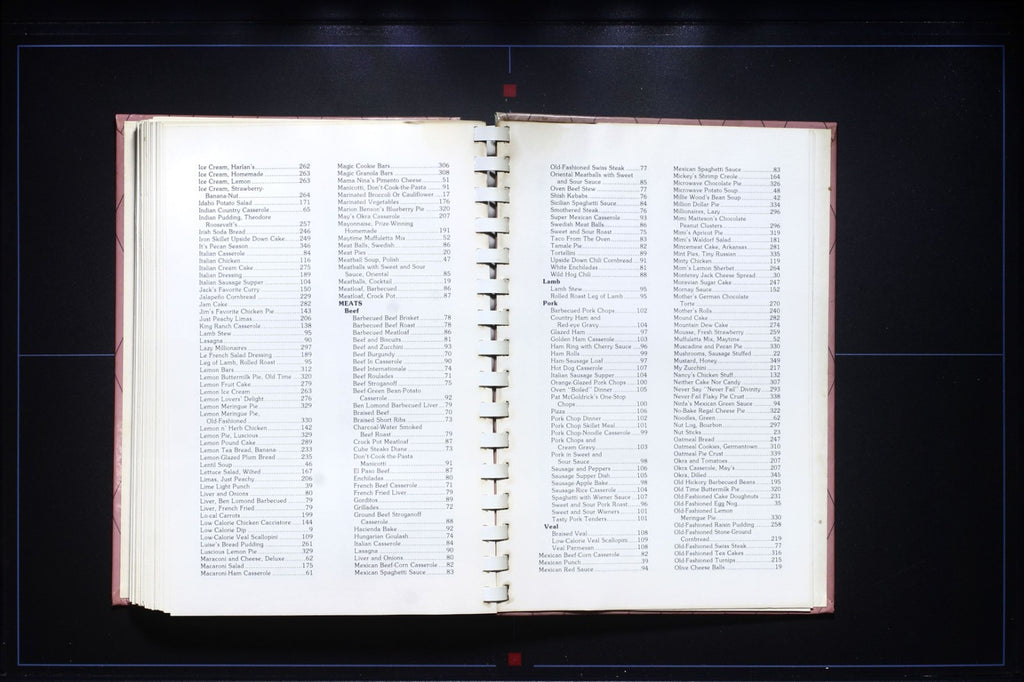 Ice Cream, Harlan's 262
Ice Cream, Homemade 263
Ice Cream, Lemon 263
Ice Cream, Strawberry-
Banana-Nut 264
Idaho Potato Salad 171
Indian Country Casserole 65
Indian Pudding, Theodore
Roosevelt's 257
Irish Soda Bread 246
Iron Skillet Upside Down Cake 249
It's Pecan Season 346
Italian Casserole 84
Italian Chicken 116
Italian Cream Cake 275
Italian Dressing 189
Italian Sausage Supper 104
Jack's Favorite Curry 150
Jalapeño Cornbread 229
Jam Cake 282
Jim's Favorite Chicken Pie 143
Just Peachy Limas 206
King Ranch Casserole 138
Lamb Stew 95
Lasagna 90
Lazy Millionaires 297
Le French Salad Dressing 189
Leg of Lamb, Rolled Roast 95
Lemon Bars 312
Lemon Buttermilk Pie, Old Time 320
Lemon Fruit Cake 279
Lemon Ice Cream 263
Lemon Lovers' Delight 276
Lemon Meringue Pie 329
Lemon Meringue Pie,
Old-Fashioned 330
Lemon n' Herb Chicken 142
Lemon Pie, Luscious 329
Lemon Pound Cake 289
Lemon Tea Bread, Banana 233
Lemon-Glazed Plum Bread 235
Lentil Soup 46
Lettuce Salad, Wilted 167
Limas, Just Peachy 206
Lime Light Punch 39
Liver and Onions 80
Liver, Ben Lomond Barbecued 79
Liver, French Fried 79
Lo-cal Carrots 199
Low Calorie Chicken Cacciatore 144
Low Calorie Dip 9
Low-Calorie Veal Scallopini 109
Luise's Bread Pudding 261
Luscious Lemon Pie 329
Macaroni and Cheese, Deluxe 62
Macaroni Salad 175
Macaroni-Ham Casserole 61
Magic Cookie Bars 306
Magic Granola Bars 308
Mama Nina's Pimento Cheese 51
Manicotti, Don't-Cook-the-Pasta 91
Marinated Broccoli Or Cauliflower 17
Marinated Vegetables 176
Marion Benson's Blueberry Pie 320
May's Okra Casserole 207
Mayonnaise, Prize-Winning
Homemade 191
Maytime Muffuletta Mix 52
Meat Balls, Swedish 86
Meat Pies 20
Meatball Soup, Polish 47
Meatballs with Sweet and Sour
Sauce, Oriental 85
Meatballs, Cocktail 19
Meatloaf, Barbecued 86
Meatloaf, Crock Pot 87
MEATS
Beef
Barbecued Beef Brisket 78
Barbecued Beef Roast 78
Barbecued Meatloaf 86
Beef and Biscuits 81
Beef and Zucchini 93
Beef Burgundy 70
Beef In Casserole 90
Beef Internationale 74
Beef Roulades 71
Beef Stroganoff 75
Beef-Green Bean-Potato
Casserole 92
Ben Lomond Barbecued Liver 79
Braised Beef 70
Braised Short Ribs 73
Charcoal-Water Smoked
Beef Roast 79
Crock Pot Meatloaf 87
Cube Steaks Diane 73
Don't-Cook-the-Pasta
Manicotti 91
El Paso Beef 87
Enchiladas 80
French Beef Casserole 71
French Fried Liver 79
Gorditos 89
Grillades 72
Ground Beef Stroganoff
Casserole 88
Hacienda Bake 92
Hungarian Goulash 74
Italian Casserole 84
Lasagna 90
Liver and Onions 80
Mexican Beef-Corn Casserole 82
Mexican Spaghetti Sauce 83
Old-Fashioned Swiss Steak 77
Oriental Meatballs with Sweet
and Sour Sauce 85
Oven Beef Stew 77
Shish Kebabs 76
Sicilian Spaghetti Sauce 84
Smothered Steak 76
Super Mexican Casserole 93
Swedish Meat Balls 86
Sweet and Sour Roast 75
Taco From The Oven 83
Tamale Pie 82
Tortellini 89
Upside Down Chili Cornbread 91
White Enchiladas 81
Wild Hog Chili 88
Lamb
Lamb Stew 95
Rolled Roast Leg of Lamb 95
Pork
Barbecued Pork Chops 102
Country Ham and
Red-eye Gravy 104
Glazed Ham 97
Golden Ham Casserole 103
Ham Ring with Cherry Sauce 96
Ham Rolls 99
Ham-Sausage Loaf 97
Hot Dog Casserole 107
Italian Sausage Supper 104
Orange-Glazed Pork Chops 100
Oven "Boiled" Dinner 105
Pat McGoldrick's One-Stop
Chops 100
Pizza 106
Pork Chop Dinner 102
Pork Chop Skillet Meal 101
Pork Chop-Noodle Casserole 99
Pork Chops and
Cream Gravy 103
Pork in Sweet and
Sour Sauce 98
Sausage and Peppers 106
Sausage Supper Dish 105
Sausage-Apple Bake 98
Sausage-Rice Casserole 104
Spaghetti with Wiener Sauce 107
Sweet and Sour Pork Roast 96
Sweet and Sour Wieners 101
Tasty Pork Tenders 101
Veal
Braised Veal 108
Low-Calorie Veal Scallopini 109
Veal Parmesan 108
Mexican Beef-Corn Casserole 82
Mexican Punch 39
Mexican Red Sauce 94
Mexican Spaghetti Sauce 83
Mickey's Shrimp Creole 164
Microwave Chocolate Pie 326
Microwave Potato Soup 48
Millie Wood's Bean Soup 42
Million Dollar Pie 334
Millionaires, Lazy 296
Mimi Matteson's Chocolate
Peanut Clusters 296
Mimi's Apricot Pie 319
Mimi's Waldorf Salad 181
Mincemeat Cake, Arkansas 281
Mint Pies, Tiny Russian 335
Minty Chicken 119
Mom's Lemon Sherbet 264
Monterey Jack Cheese Spread 30
Moravian Sugar Cake 247
Mornay Sauce 152
Mother's German Chocolate
Torte 270
Mother's Rolls 240
Mound Cake 282
Mountain Dew Cake 274
Mousse, Fresh Strawberry 259
Muffuletta Mix, Maytime 52
Muscadine and Pecan Pie 330
Mushrooms, Sausage Stuffed 22
Mustard, Honey 349
My Zucchini 217
Nancy's Chicken Stuff 132
Neither Cake Nor Candy 307
Never Say "Never Fail" Divinity 293
Never-Fail Flaky Pie Crust 338
Ninfa's Mexican Green Sauce 94
No-Bake Regal Cheese Pie 322
Noodles, Green 62
Nut Log, Bourbon 297
Nut Sticks 23
Oatmeal Bread 247
Oatmeal Cookies, Germantown 310
Oatmeal Pie Crust 339
Okra and Tomatoes 207
Okra Casserole, May's 207
Okra, Dilled 345
Old Hickory Barbecued Beans 195
Old Time Buttermilk Pie 320
Old-Fashioned Cake Doughnuts 231
Old-Fashioned Egg Nog 35
Old-Fashioned Lemon
Meringue Pie 330
Old-Fashioned Raisin Pudding 258
Old-Fashioned Stone-Ground
Cornbread 219
Old-Fashioned Swiss Steak 77
Old-Fashioned Tea Cakes 316
Old-Fashioned Turnips 215
Olive Cheese Balls 19